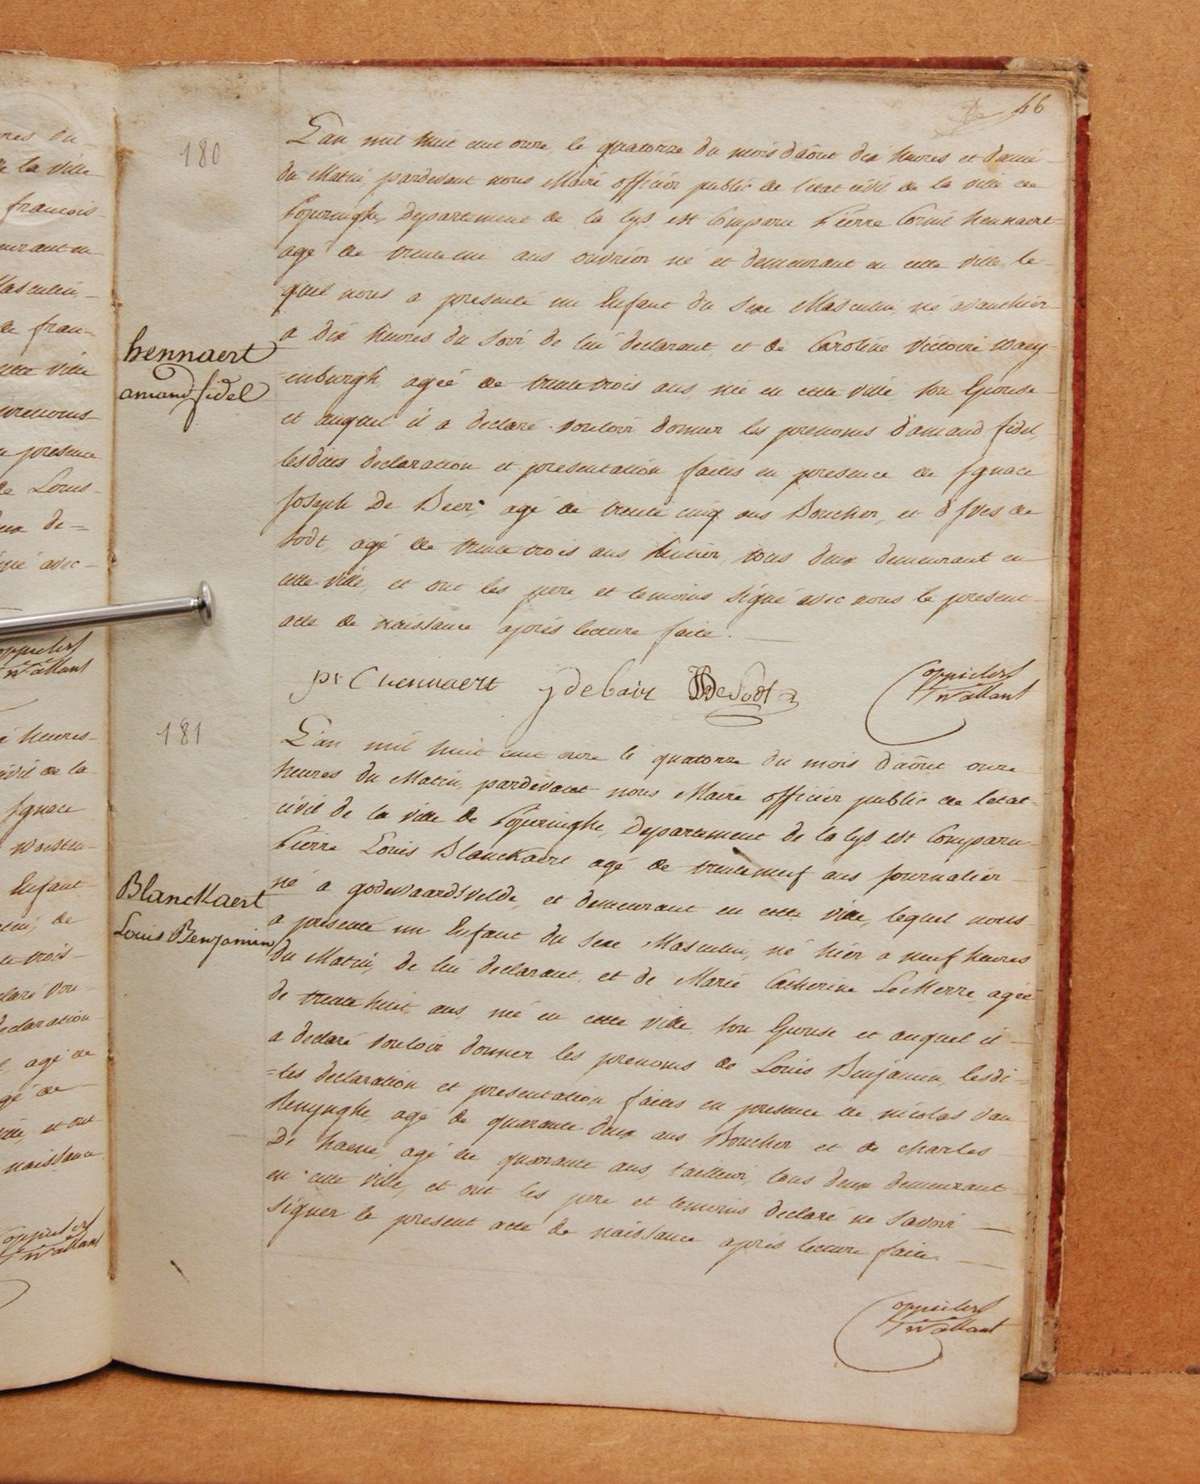 46
180
L'an mil huit cent onze, le quatorze du mois d'aôut dix heures et demi
du Matin, pardevant nous Maire officier public de l'etat civil de la ville de
Poperinghe, Departement de la Lys est Comparu Pierre Cornil hennaert
agé de trente un ans ouvrier né et demeurant en cette ville le-
quel nous a presenté un Enfant du Sexe Masculin, né avanthier
a dix heures du Soir de lui declarant, et de Caroline Victoire wany-
enburgh agée de trente trois ans née en cette ville son Epouse
et auquel il a declaré vouloir donner les prenoms d'amand fidel
lesdites declaration et presentation faites en presence de Ignace
Joseph De Beer, agé de trente cinq ans Boucher, et d'Ives de
Sodt, agé de trente trois ans huitier, tous deux demeurant en
cette ville, et ont les pere et temoins signé avec nous le present
acte de naissance après lecture faite.
hennaert
amand fidel
pr C hennaert j debair De Sodt
181
L'an mil huit cent onze le quatorze du mois d'aôut onze
heures du Matin, pardevant nous Maire officier public de l'etat
civil de la ville de Poperinghe, Departement de la Lys est Comparu
Pierre Louis Blanckaert agé de trente neuf ans journalier
né a godewaardsvelde, et demeurant en cette ville, lequel nous
a presenté un Enfant du Sexe Masculin, né hier a neuf heures
du Matin, de lui declarant, et de Marie Catherine LeMerre agée
de trente huit ans, née en cette ville, son Epouse et auquel il
a declaré vouloir donner les prenoms de Louis Benjamin, lesdi-
=tes declaration et presentation faites en presence de nicolas van
Renynghe, agé de quarante deux ans Boucher et de charles
De haene, agé de quarante ans, tailleur, tous deux demeurant
en cette ville, et ont les pere et temoins declaré ne savoir
signer le present acte de naissance après lecture faite.
Blanckaert
Louis Benjamin